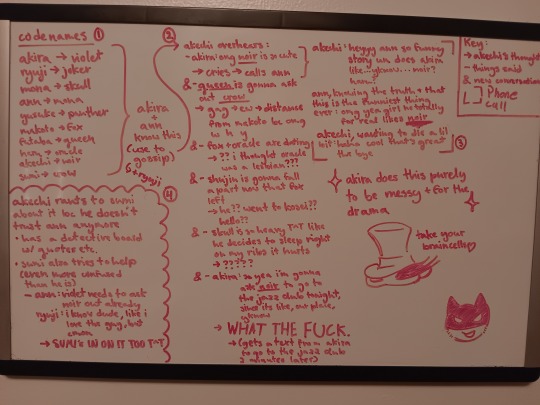 codenames ①
akira → violet
ryuji → joker
mona → skull
ann → mona
yusuke → panther
makoto → fox
futaba → queen
haru → oracle
akechi → noir
sumi → crow
akira
+
ann
know this
(use to
gossip)
+ ryuji
②
akechi overhears:
- akira: omg noir is so cute
→ cries → calls ann
& - queen is gonna ask
out crow
→ gay → ew → distance
from makoto be omg
w h y
& - fox + oracle are dating
→ ?? i thought oracle
was a lesbian???
& - shujin is gonna fall
apart now that fox
left
→ he?? went to kosei??
hello??
& - skull is so heavy TAT like
he decides to sleep right
on my ribs it hurts
→ ?????
& - akira: so yea i'm gonna
ask noir to go to
the jazz club tonight,
since its like, our place,
yknow
→ WHAT THE FUCK.
→ (gets a text from akira
to go to the jazz club
2 minutes later)
akechi: heyyy ann so funny
story un does akira
like...yknow...noir?
haru?
ann, knowing the truth, + that
this is the funniest thing
ever: omg yea girl he totally
for real likes noir
akechi, wanting to die a lil
bit: haha cool that's great
thx bye
③
akira does this purely
to be messy + for the
drama
take your
braincells
Key:
→ akechi's thoughts
- things said
& new conversation
[ ] Phone
call
④
akechi rants to sumi
about it bc he doesn't
trust ann anymore
• has a detective board
w/ quotes etc.
• sumi also tries to help
(even more confused
than he is)
- ann: violet needs to ask
noir out already
ryuji: i know dude, like i
love the guy, but
cmon
→ SUMI'S IN ON IT TOO TAT